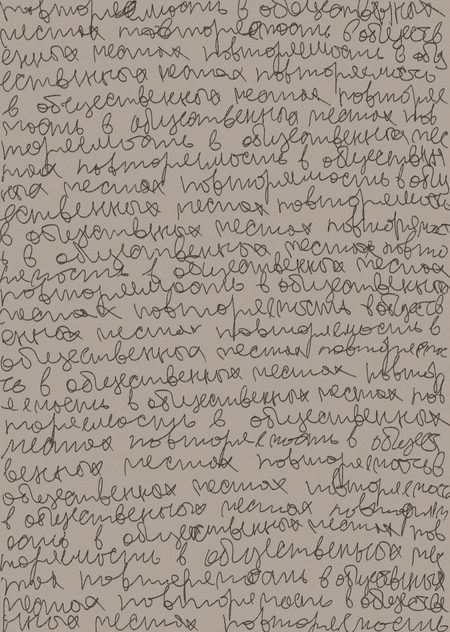 повторяемость в общественных
местах повторяемость в обществ
енных местах повторяемость в общ
ественных местах повторяемость
в общественных местах повторяе
мость в общественных местах пов
торяемость в общественных мес
тах повторяемость в обществен
ных местах повторяемость в общ
ественных местах повторяемость
в общественных местах повторяемос
ть в общественных местах повто
ряемость в общественных местах
повторяемость в общественных
местах повторяемость в обществ
енных местах повторяемость в
общественных местах повторяемос
ть в общественных местах повтор
яемость в общественных местах пов
торяемость в общественных
местах повторяемость в общест
венных местах повторяемость в
общественных местах повторяемость
в общественных местах повторяем
ость в общественных местах пов
торяемость в общественных мес
тах повторяемость в общественных
местах повторяемость в обществе
нных местах повторяемость